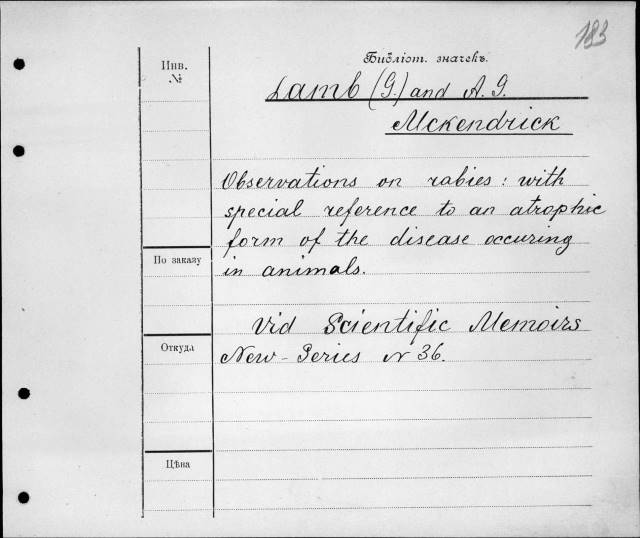 183
Библіот. значекъ.
Инв.
№
Lamb (G.) and A. G.
Mckendrick
Observations on rabies: with
special reference to an atrophic
form of the disease occuring
in animals.
По заказу
Vid Scientific Memoirs
Откуда
New-Series N 36.
Цѣна